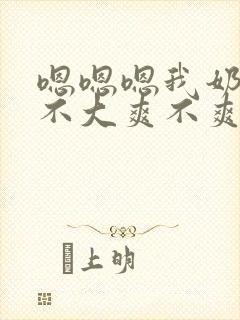 嗯嗯嗯我奶
不大爽不爽
上明